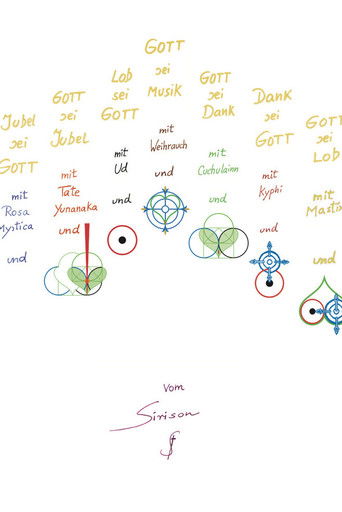 Jubel
sei
GOTT
mit
Rosa
Mystica
und
GOTT
sei
Jubel
mit
Tate
Yunanaka
und
Lob
sei
GOTT
mit
Ud
und
GOTT
sei
Musik
mit
Weihrauch
und
GOTT
sei
Dank
mit
Cuchulainn
und
Dank
sei
GOTT
mit
Kyphi
und
GOTT
sei
Lob
mit
und
vom
Sirison